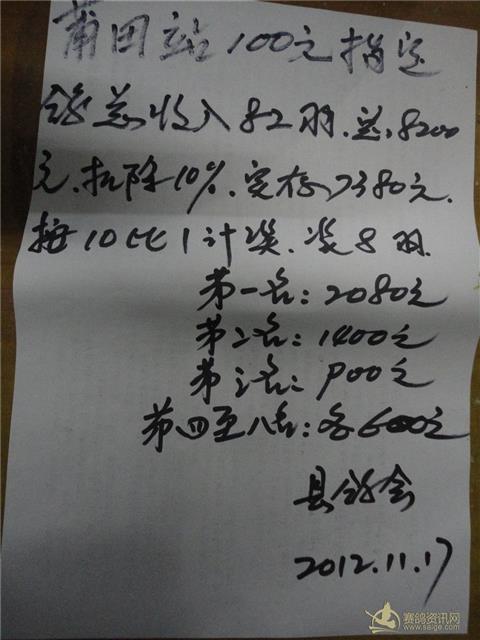 莆田站100元指定
鸽总收入82羽.总:8200
元.扣除10%.实存7380元.
按10比1计奖.奖8羽.
第一名:2080元
第二名:1400元
第三名:900元
第四至八名:各600元
县鸽会
2012.11.17
赛鸽资讯网
www.saige.com